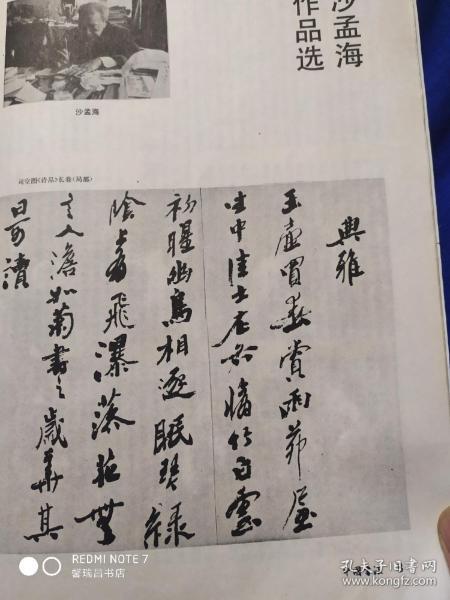 沙孟海
作品选
沙孟海
司空图《诗品》长卷(局部)
典雅
玉壺買春賞雨茅屋
坐中佳士左右脩竹白雲
初晴幽鳥相逐眠琴綠
陰上有飛瀑落花無
言人澹如菊書之歲華其
曰可讀
REDMI NOTE 7
馨瑞昌书店
孔夫子旧书网